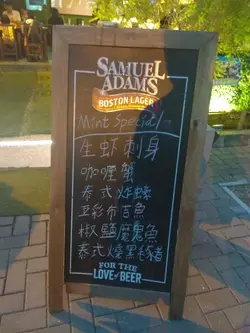 SAMUEL
ADAMS
BOSTON LAGER
Mint Special
生虾刺身
咖喱蟹
泰式炸蠔
五彩布吉魚
椒鹽魔鬼魚
泰式燒黑毛豬
FOR THE
LOVE OF BEER